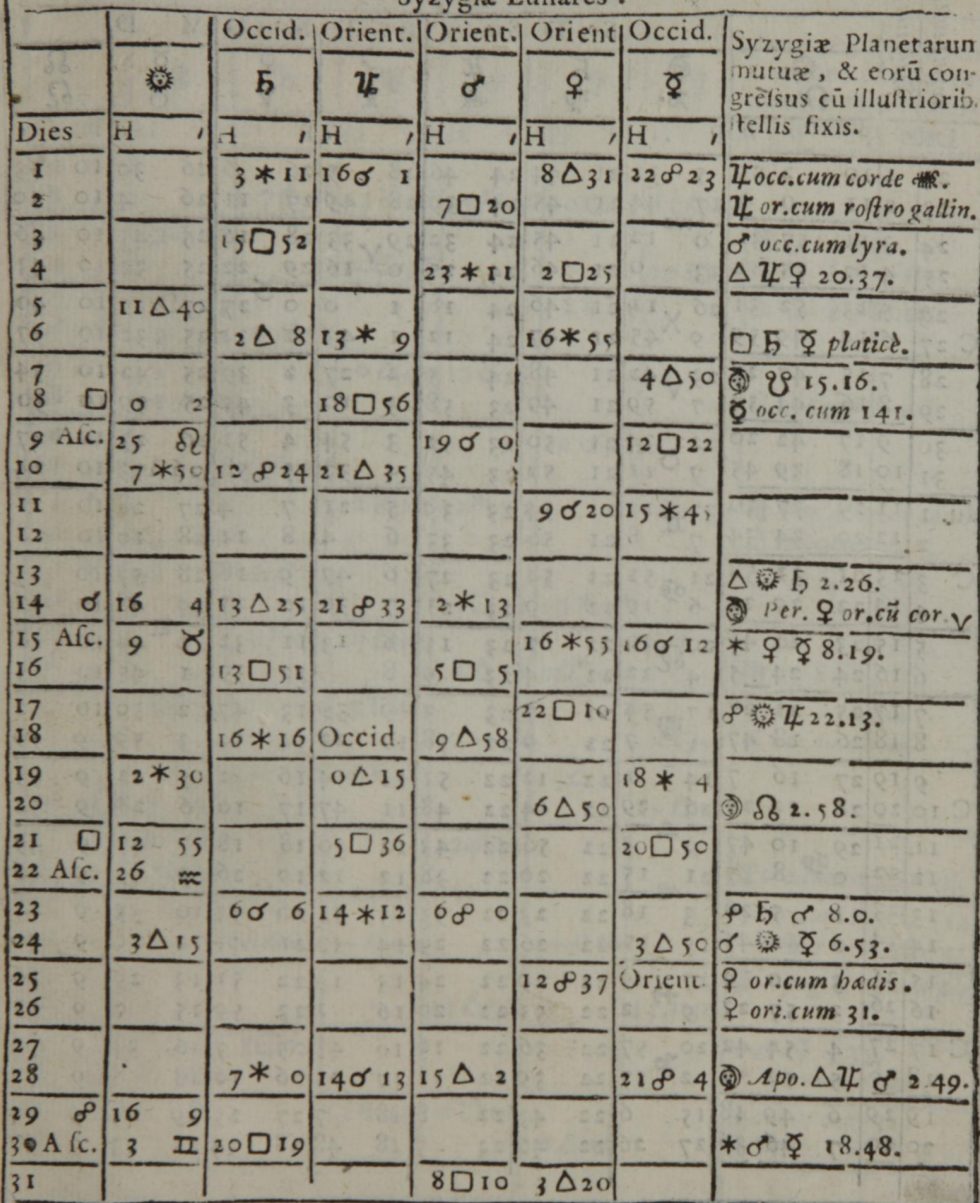 Syzygiæ Lunares.
Occid. Orient. Orient. Orient Occid. Syzygiæ Planetarum
☉ ♄ ♃ ♂ ♀ ☿ mutuæ, & eorū con-
gressus cū illustriorib.
stellis fixis.
Dies H ′ H ′ H ′ H ′ H ′ H ′
1 3 ⚹ 11 16 ☌ 1 8 △ 31 22 ☍ 23 ♃ occ. cum corde ♏.
2 7 □ 20 ♃ or. cum rostro gallin.
3 15 □ 52 ♂ occ. cum lyra.
4 23 ⚹ 11 2 □ 25 △ ♃ ♀ 20.37.
5 11 △ 40
6 2 △ 8 13 ⚹ 9 16 ⚹ 55 □ ♄ ☿ platicè.
7 4 △ 50 ☽ ☋ 15.16.
8 □ 0 2 18 □ 56 ☿ occ. cum 141.
9 Asc. 25 ♌ 19 ☌ 0 12 □ 22
10 7 ⚹ 50 12 ☍ 24 21 △ 35
11 9 ☌ 20 15 ⚹ 4
12
13 △ ☉ ♄ 2.26.
14 ☌ 16 4 13 △ 25 21 ☍ 33 2 ⚹ 13 ☽ Per. ♀ or. cū cor. ♈
15 Asc. 9 ♉ 16 ⚹ 55 16 ☌ 12 ⚹ ♀ ☿ 8.19.
16 13 □ 51 5 □ 5
17 22 □ 10 ☍ ☉ ♃ 22.13.
18 16 ⚹ 16 Occid 9 △ 58
19 2 ⚹ 30 0 △ 15 18 ⚹ 4
20 6 △ 50 ☽ ☊ 2.58.
21 □ 12 55 5 □ 36 20 □ 50
22 Asc. 26 ♒
23 6 ☌ 6 14 ⚹ 12 6 ☍ 0 ☍ ♄ ♂ 8.0.
24 3 △ 15 3 △ 50 ☌ ☉ ☿ 6.53.
25 12 ☍ 37 Orient. ♀ or. cum hædis.
26 ♀ ori. cum 31.
27
28 7 ⚹ 0 14 ☌ 13 15 △ 2 21 ☍ 4 ☽ Apo. △ ♃ ♂ 2.49.
29 ☍ 16 9
30 Asc. 3 ♊ 20 □ 19 ⚹ ♂ ☿ 18.48.
31 8 □ 10 3 △ 20